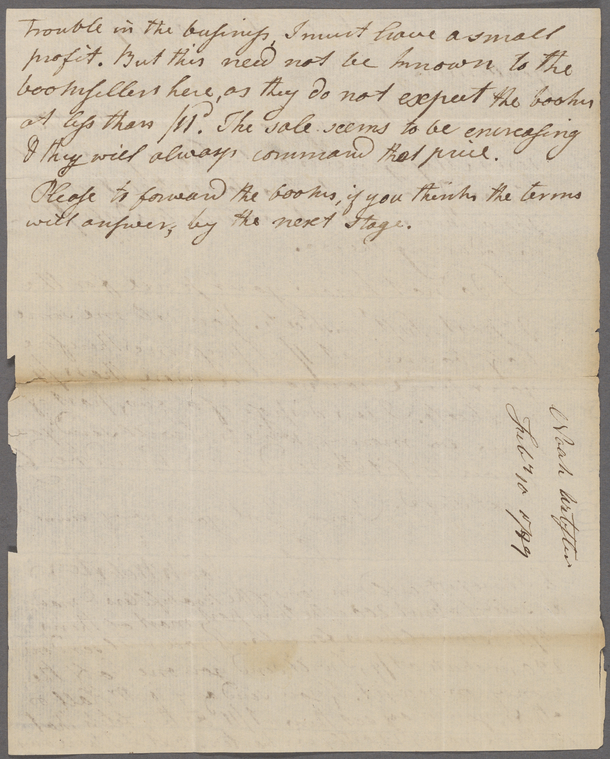 trouble in the business, I must have a small
profit. But this need not be known to the
booksellers here, as they do not expect the books
at less than /11d. The sale seems to be encreasing
& they will always command that price.
Please to forward the books, if you think the terms
will answer, by the next Stage.
Noah Webster
Feby 10 1789